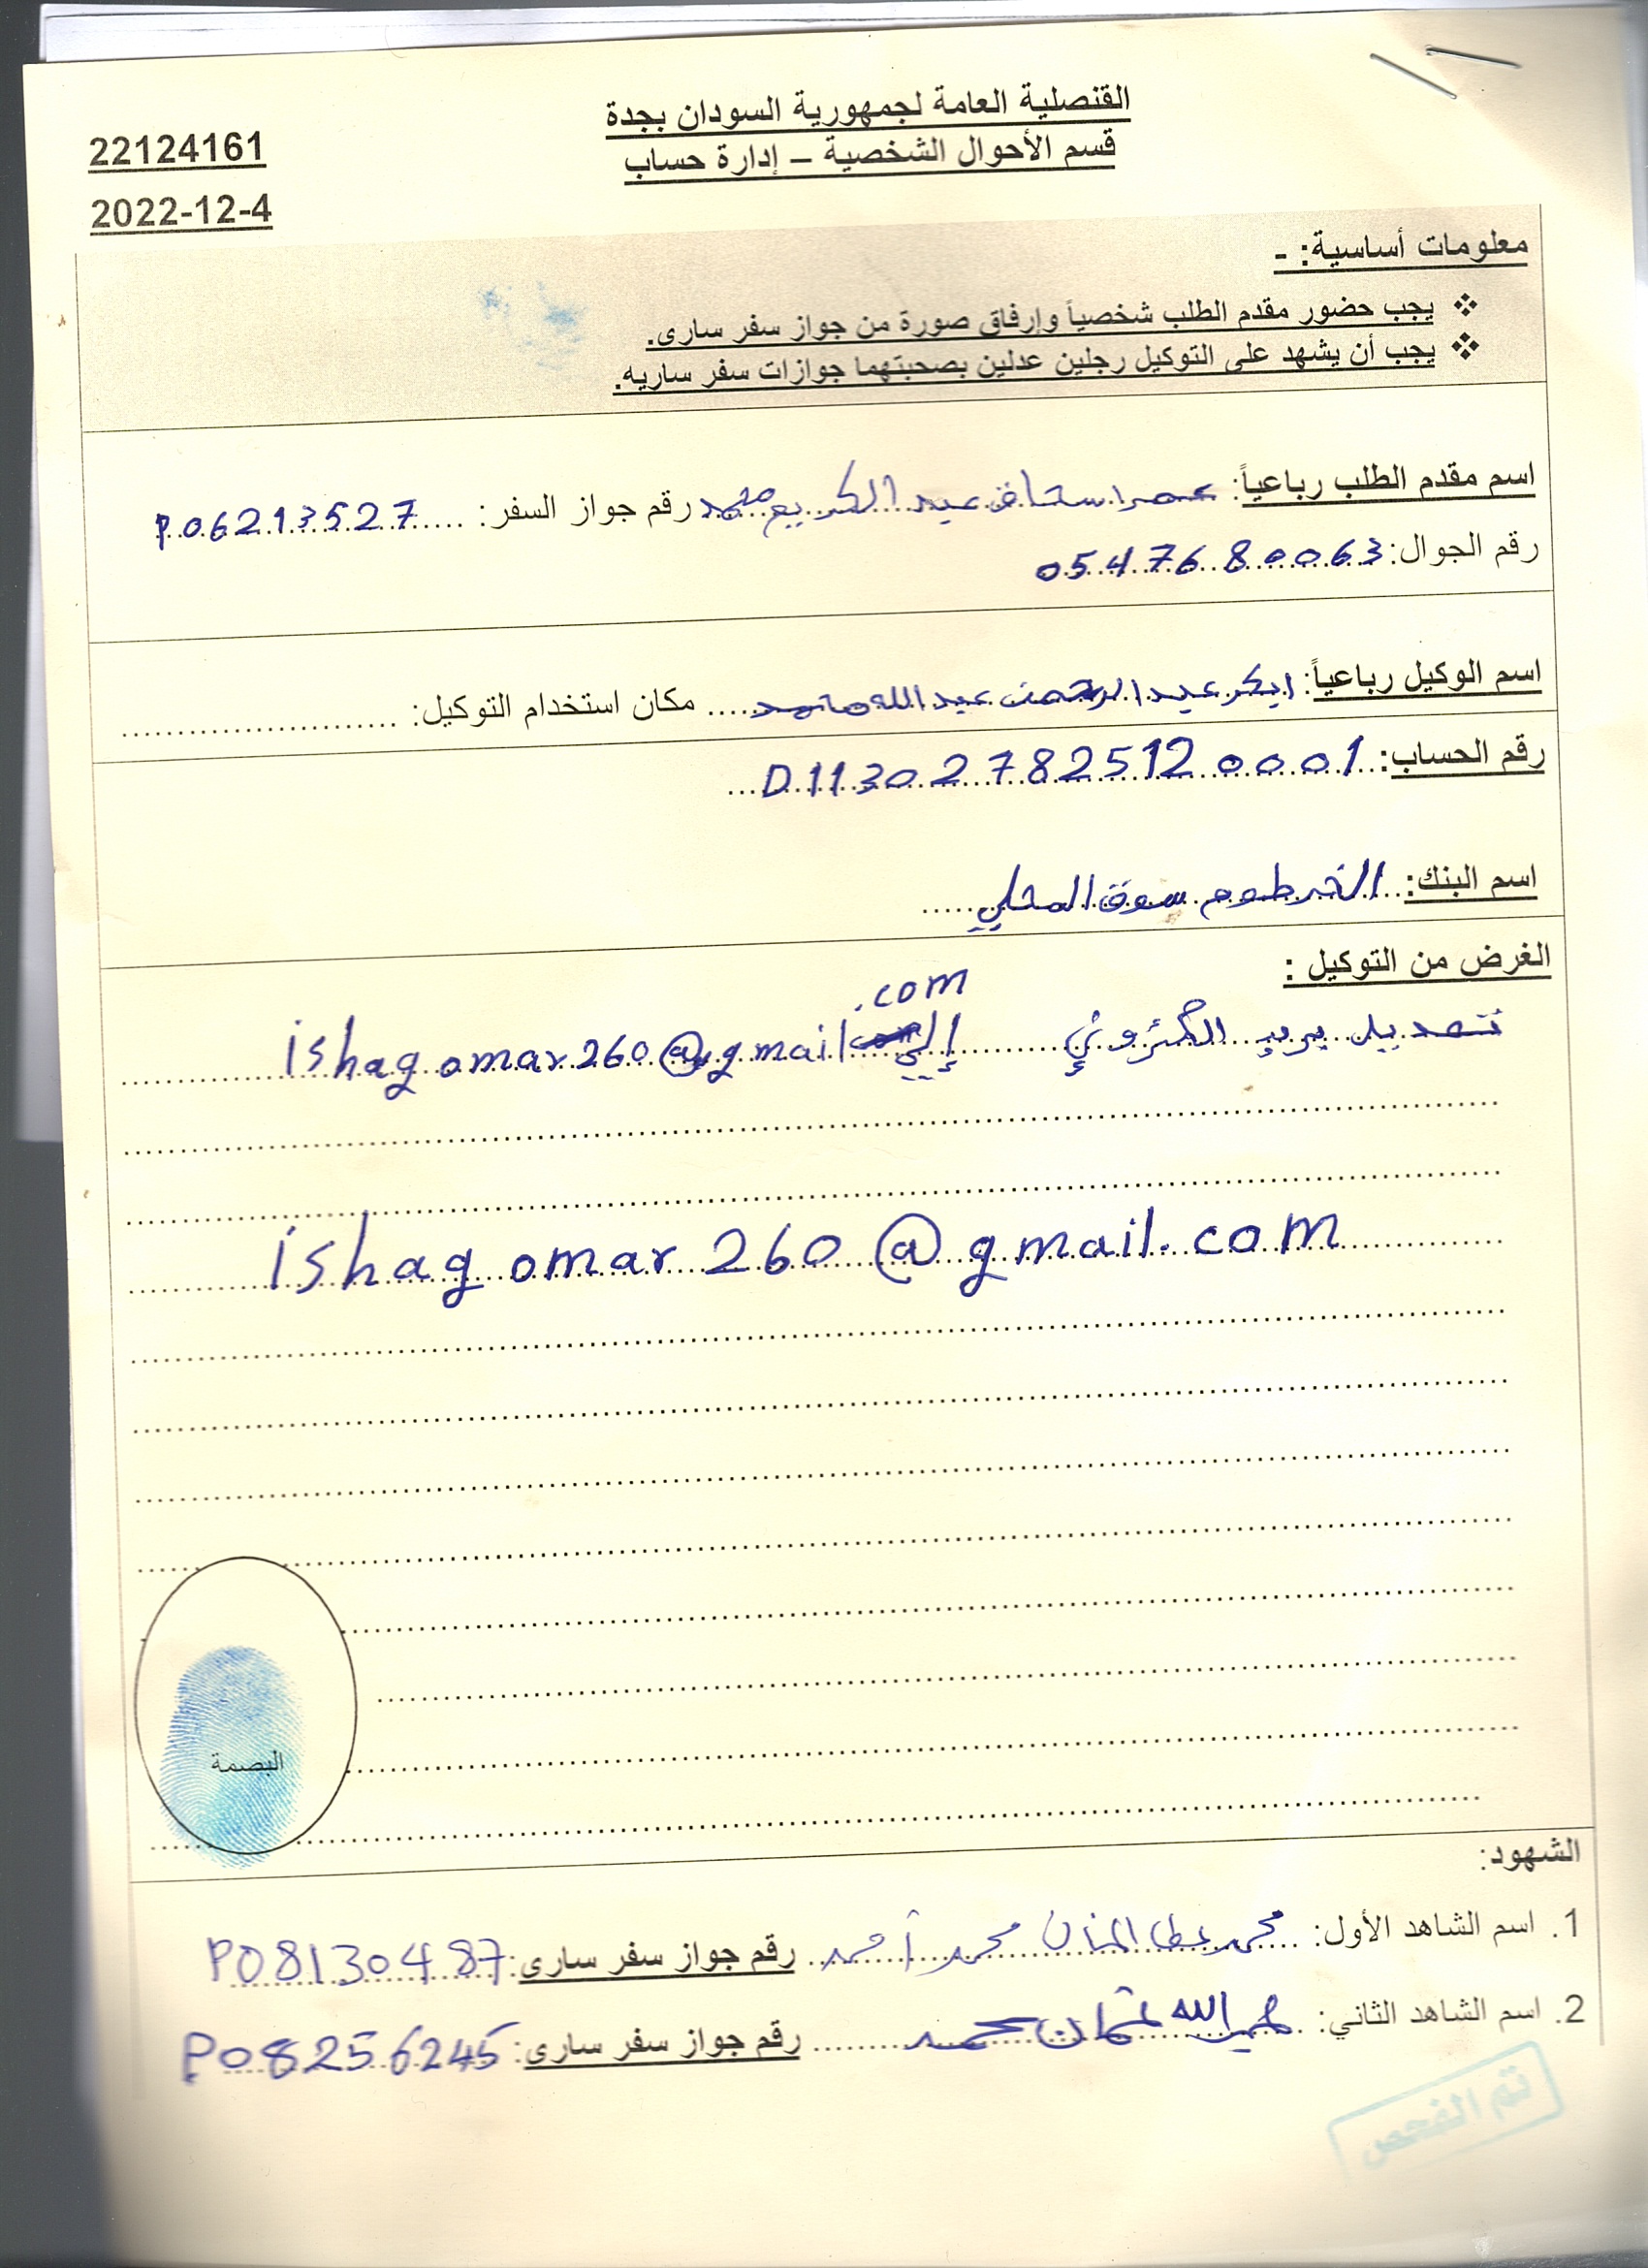 القنصلية العامة لجمهورية السودان بجدة
قسم الأحوال الشخصية – إدارة حساب
22124161
2022-12-4
معلومات أساسية: -
❖ يجب حضور مقدم الطلب شخصياً وإرفاق صورة من جواز سفر سارى.
❖ يجب أن يشهد على التوكيل رجلين عدلين بصحبتهما جوازات سفر ساريه.
اسم مقدم الطلب رباعياً: عبد الكريم محمد رقم جواز السفر: P06213527
رقم الجوال: 0547680063
اسم الوكيل رباعياً: ابكر عبد الرحمن عبد الله حامد مكان استخدام التوكيل:
رقم الحساب: D113027825120001
اسم البنك: الخرطوم سوق المحلي
الغرض من التوكيل :
تعديل بريد الكتروني إلي ishagomar260@gmail.com
ishagomar260@gmail.com
البصمة
الشهود:
1. اسم الشاهد الأول: محمد عطا المنان محمد أحمد رقم جواز سفر سارى: P08130487
2. اسم الشاهد الثاني: عبد الله عثمان محمد رقم جواز سفر سارى: P08256245
تم الفحص